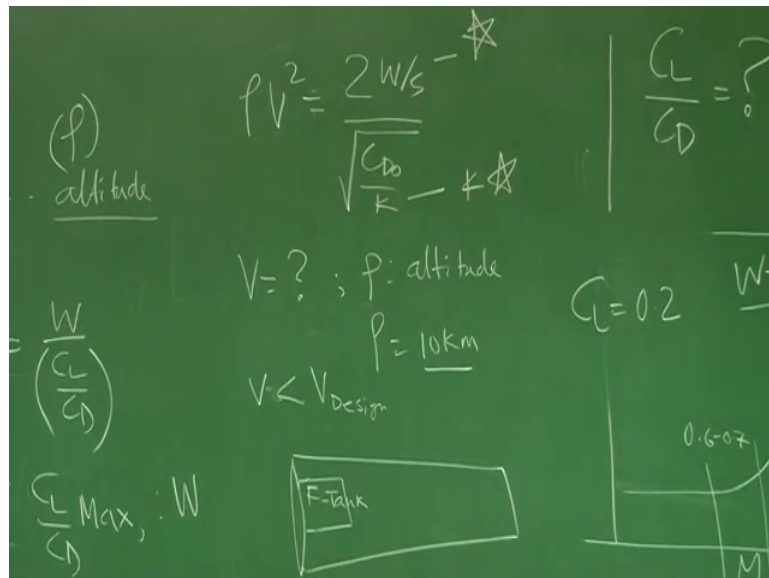 (ρ)
altitude
= W / (C_L / C_D)
C_L / C_D Max, : W
ρV² = 2 W/S / √(C_D0 / K)
K
V = ? ; ρ: altitude
ρ = 10km
V < V_Design
F-Tank
C_L / C_D = ?
C_L = 0.2
W
0.6-0.7
M